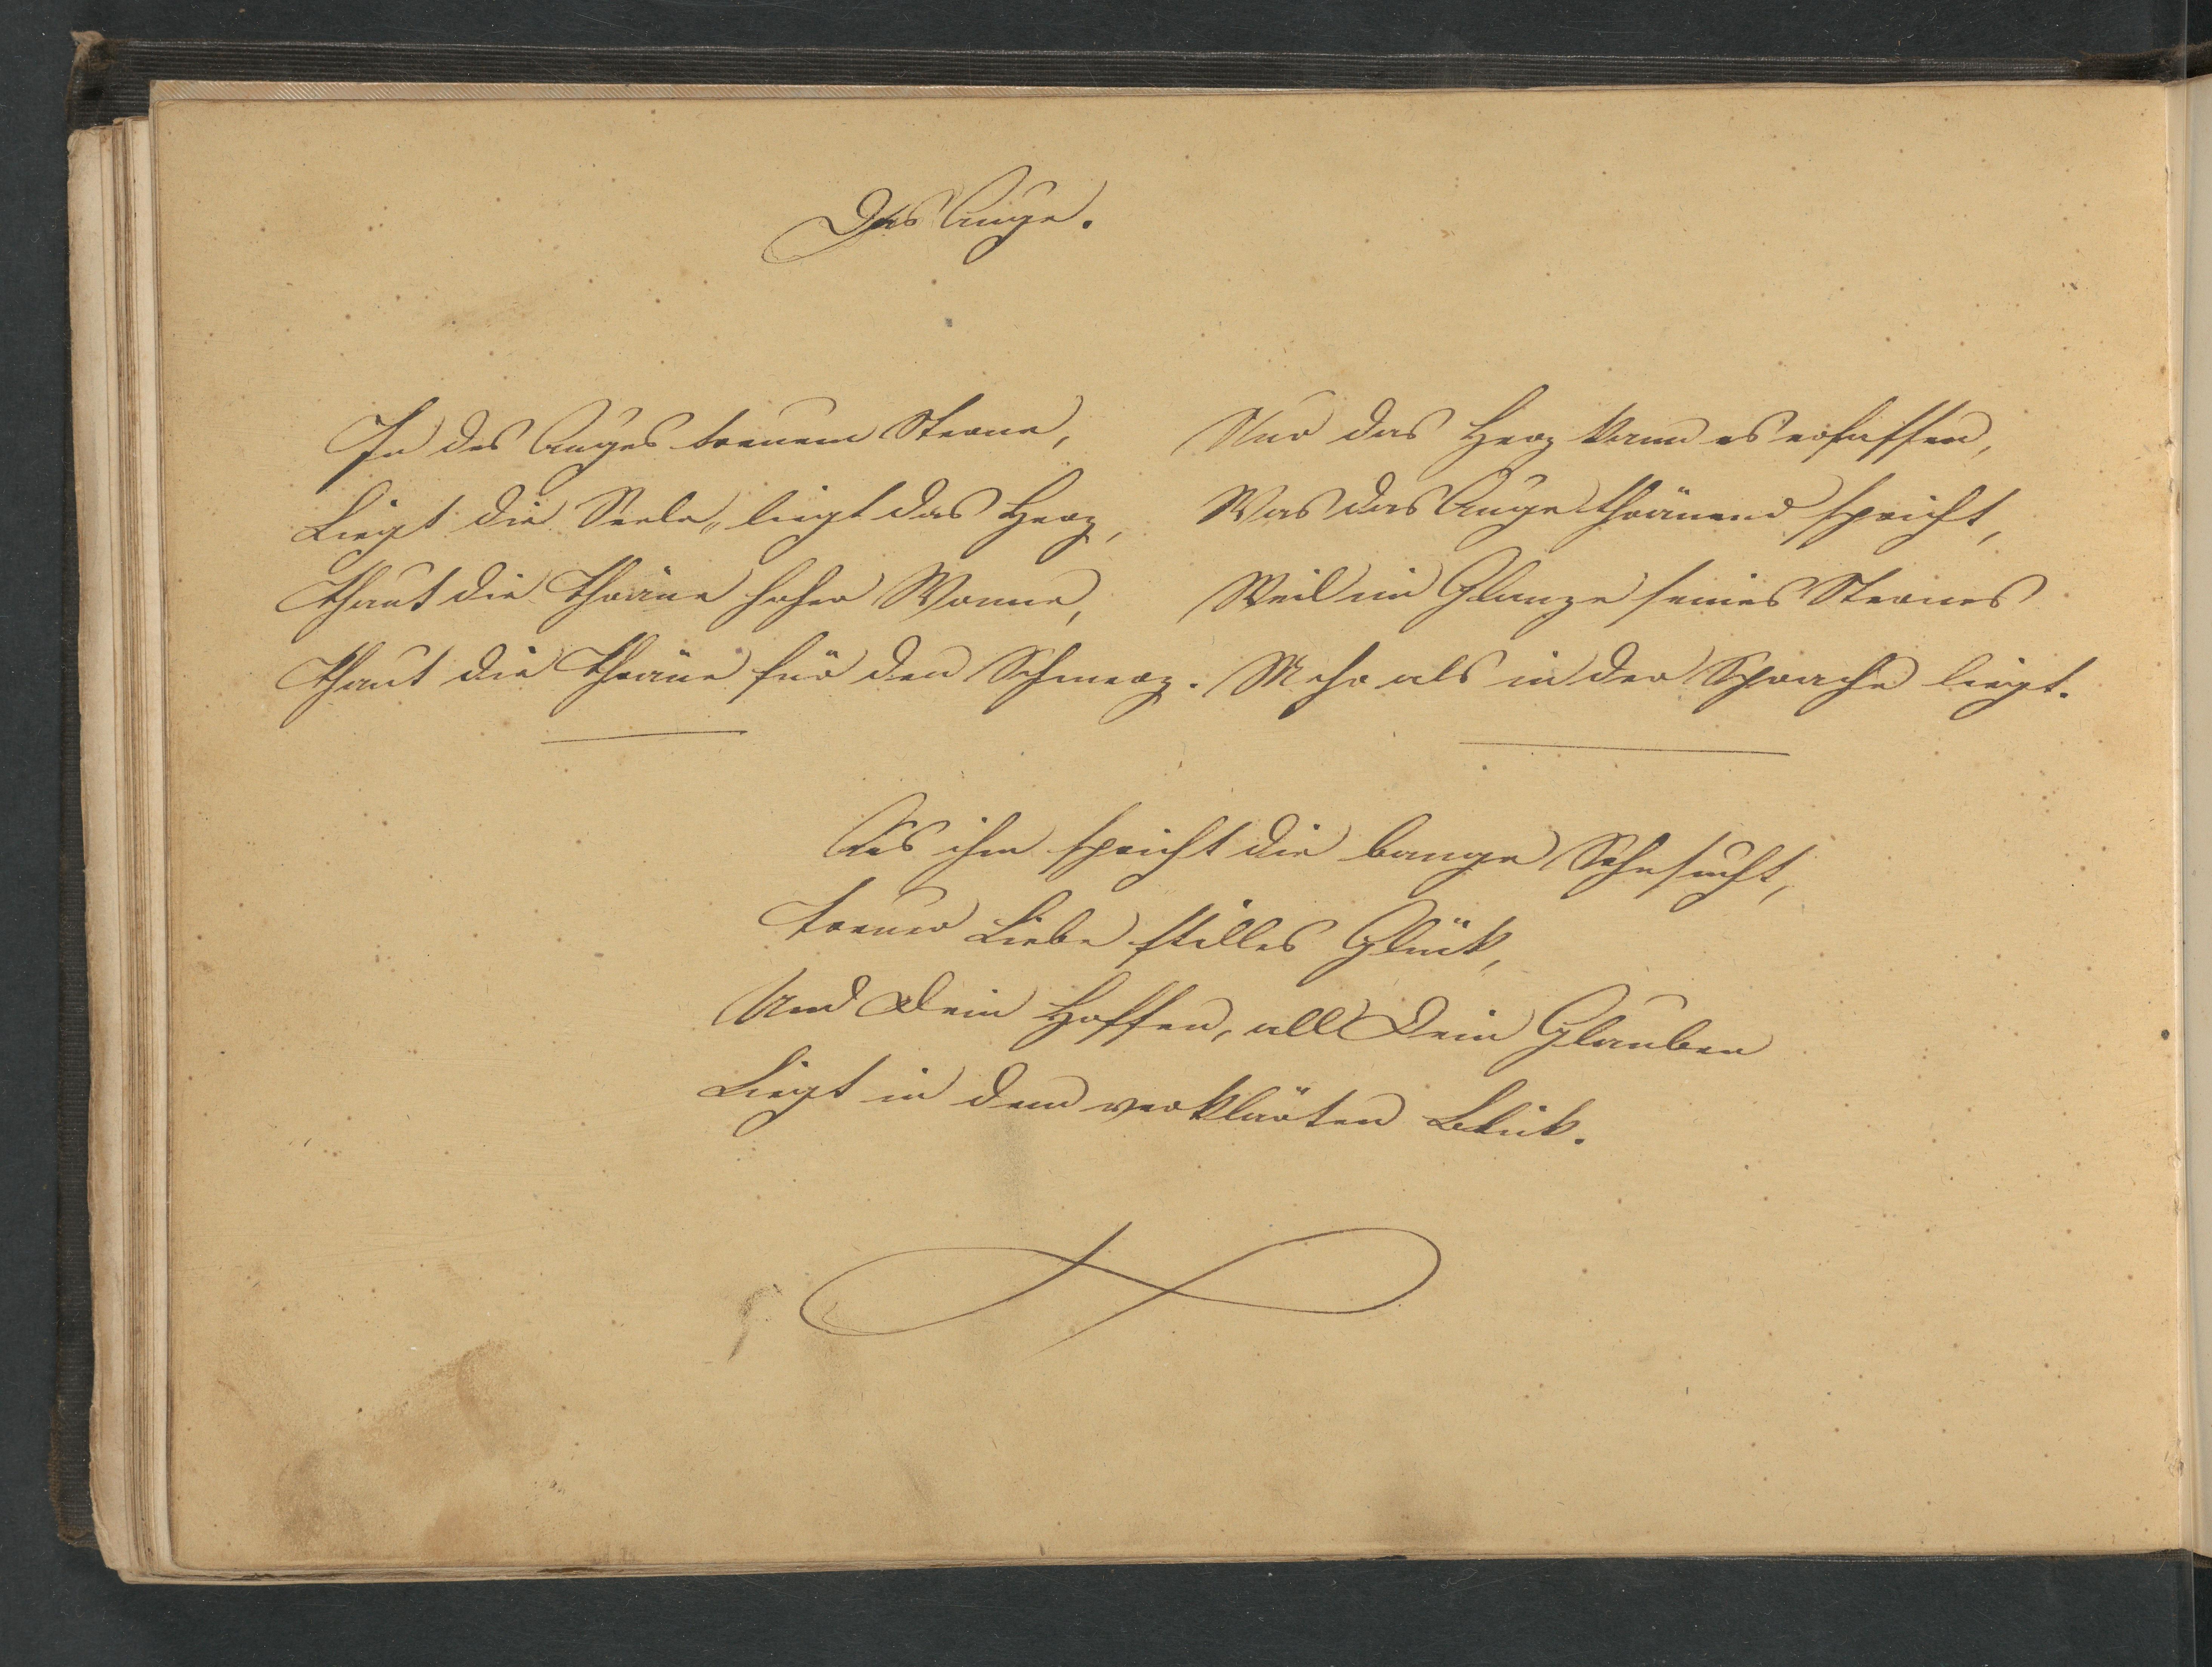 Das Auge.
In des Auges treuem Sterne,
Liegt die Seele, liegt das Herz,
Thaut die Thräne hoher Wonne,
Thaut die Thräne für den Schmerz.
Nur das Herz kann es erfassen,
Was das Auge thränend spricht,
Weil im Glanze seines Sternes
Mehr als in der Sprache liegt.
Aus ihm spricht die bange Sehnsucht,
Treuer Liebe stilles Glück,
Und Dein Hoffen, all Dein Glauben
Liegt in dem verklärten Blick.